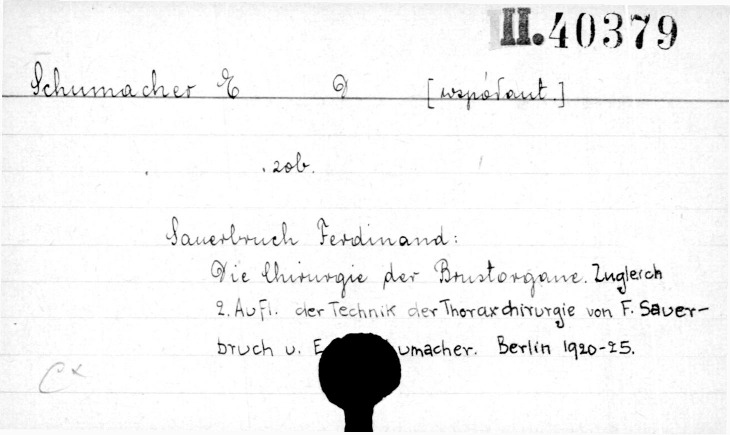 II.40379
Schumacher E D [współaut.]
zob.
Sauerbruch Ferdinand:
Die Chirurgie der Brustorgane. Zugleich
2. Aufl. der Technik der Thoraxchirurgie von F. Sauer-
bruch u. E umacher. Berlin 1920-25.